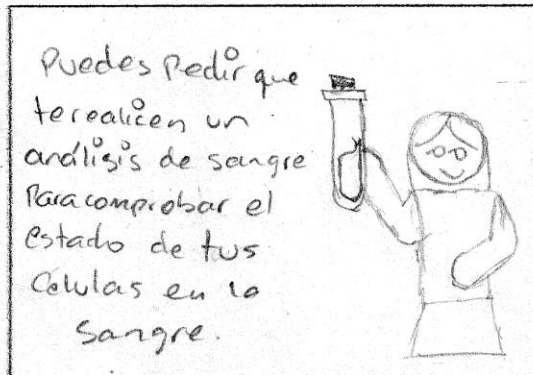 Puedes Pedir que
te realicen un
análisis de sangre
Para comprobar el
estado de tus
Células en la
Sangre.